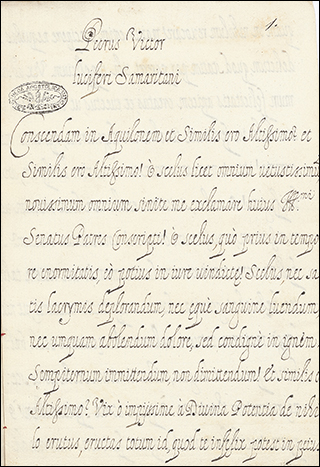 1.
Petrus Victor
luciferi Samaritani
Conscendam in Aquilonem et Similis ero Altissimo? et
Similis ero Altissimo! O scelus licet omnium vetustissimũ
novissimum omnium sinite me exclamare huius
Senatus Patres Conscripti! O scelus, quò prius in tempo
re enormitatis, eò potius in iure vindictę! Scelus, nec sa
tis lacrymis deplorandum, nec eque sanguine luendum
nec unquam abolendum dolore, sed condignè in ignem
Sempiternum immittendum, non dimittendum! Et similis e
Altissimo? Vix ò impijssime à Divina Potentia de nihi
lo erutus, erectos totum id, quod te infelix potest in peius